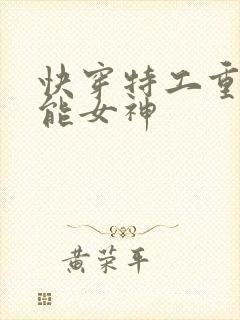 快穿特工重
能女神
黄荣平